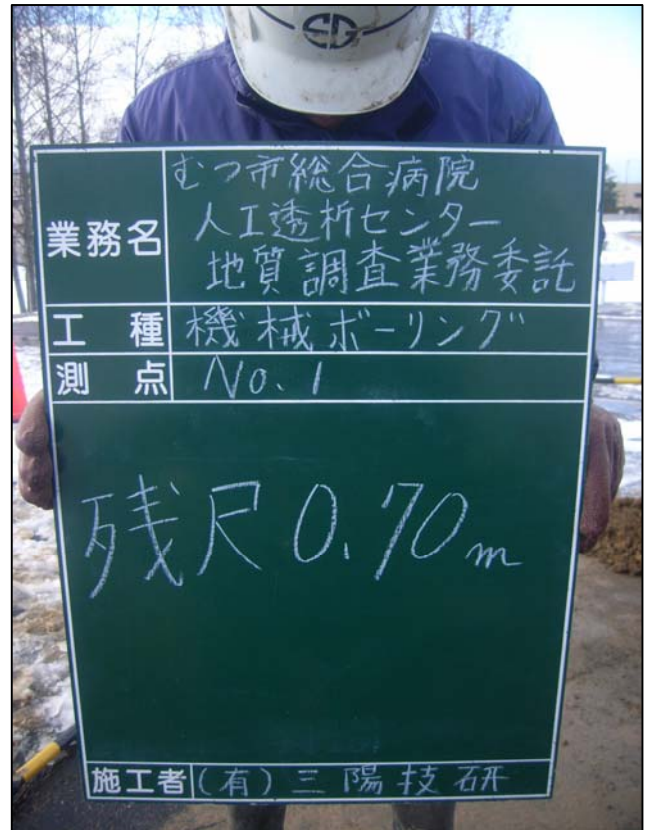 SG
業務名
むつ市総合病院
人工透析センター
地質調査業務委託
工種 機械ボーリング
測点 No.1
残尺 0.70m
施工者 (有)三陽技研